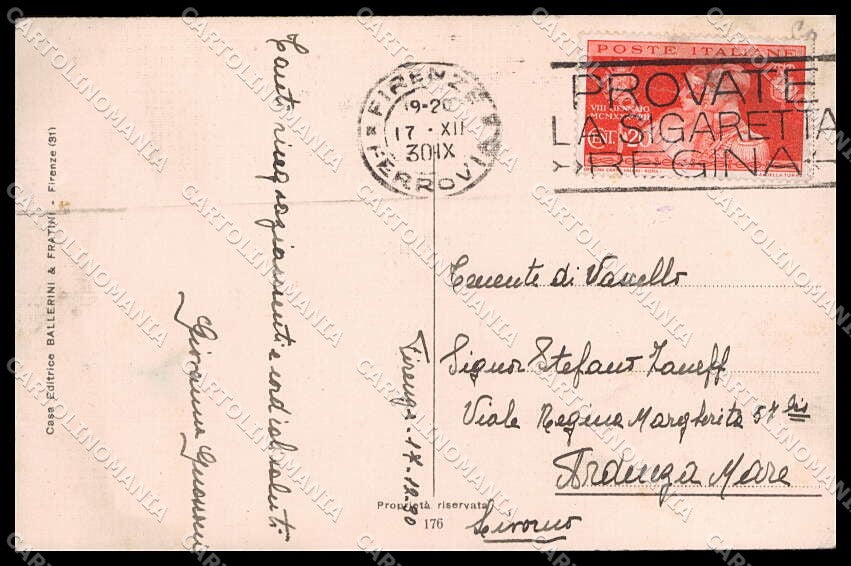 Tanti ringraziamenti e cordiali saluti
Giovanna
Firenze - 17-12-30
Casa Editrice BALLERINI & FRATINI - Firenze (31)
FIRENZE
19-20
17 · XII
30 IX
FERROVIA
POSTE ITALIANE
VIII GENNAIO
CENT. 20
PROVATE
LA SIGARETTA
REGINA
Tenente di Vascello
Signor Stefano Zaneff
Viale Regina Margherita 57 bis
Ardenza Mare
Livorno
Proprietà riservata
176
CARTOLINOMANIA